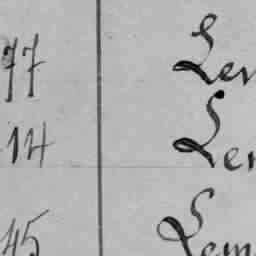 77 Ler
14 Ler
45 Lem